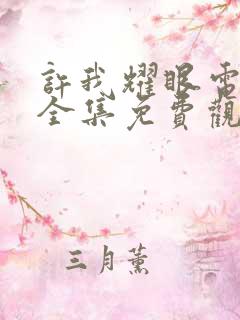 許我耀眼電
全集免費觀
三月薰